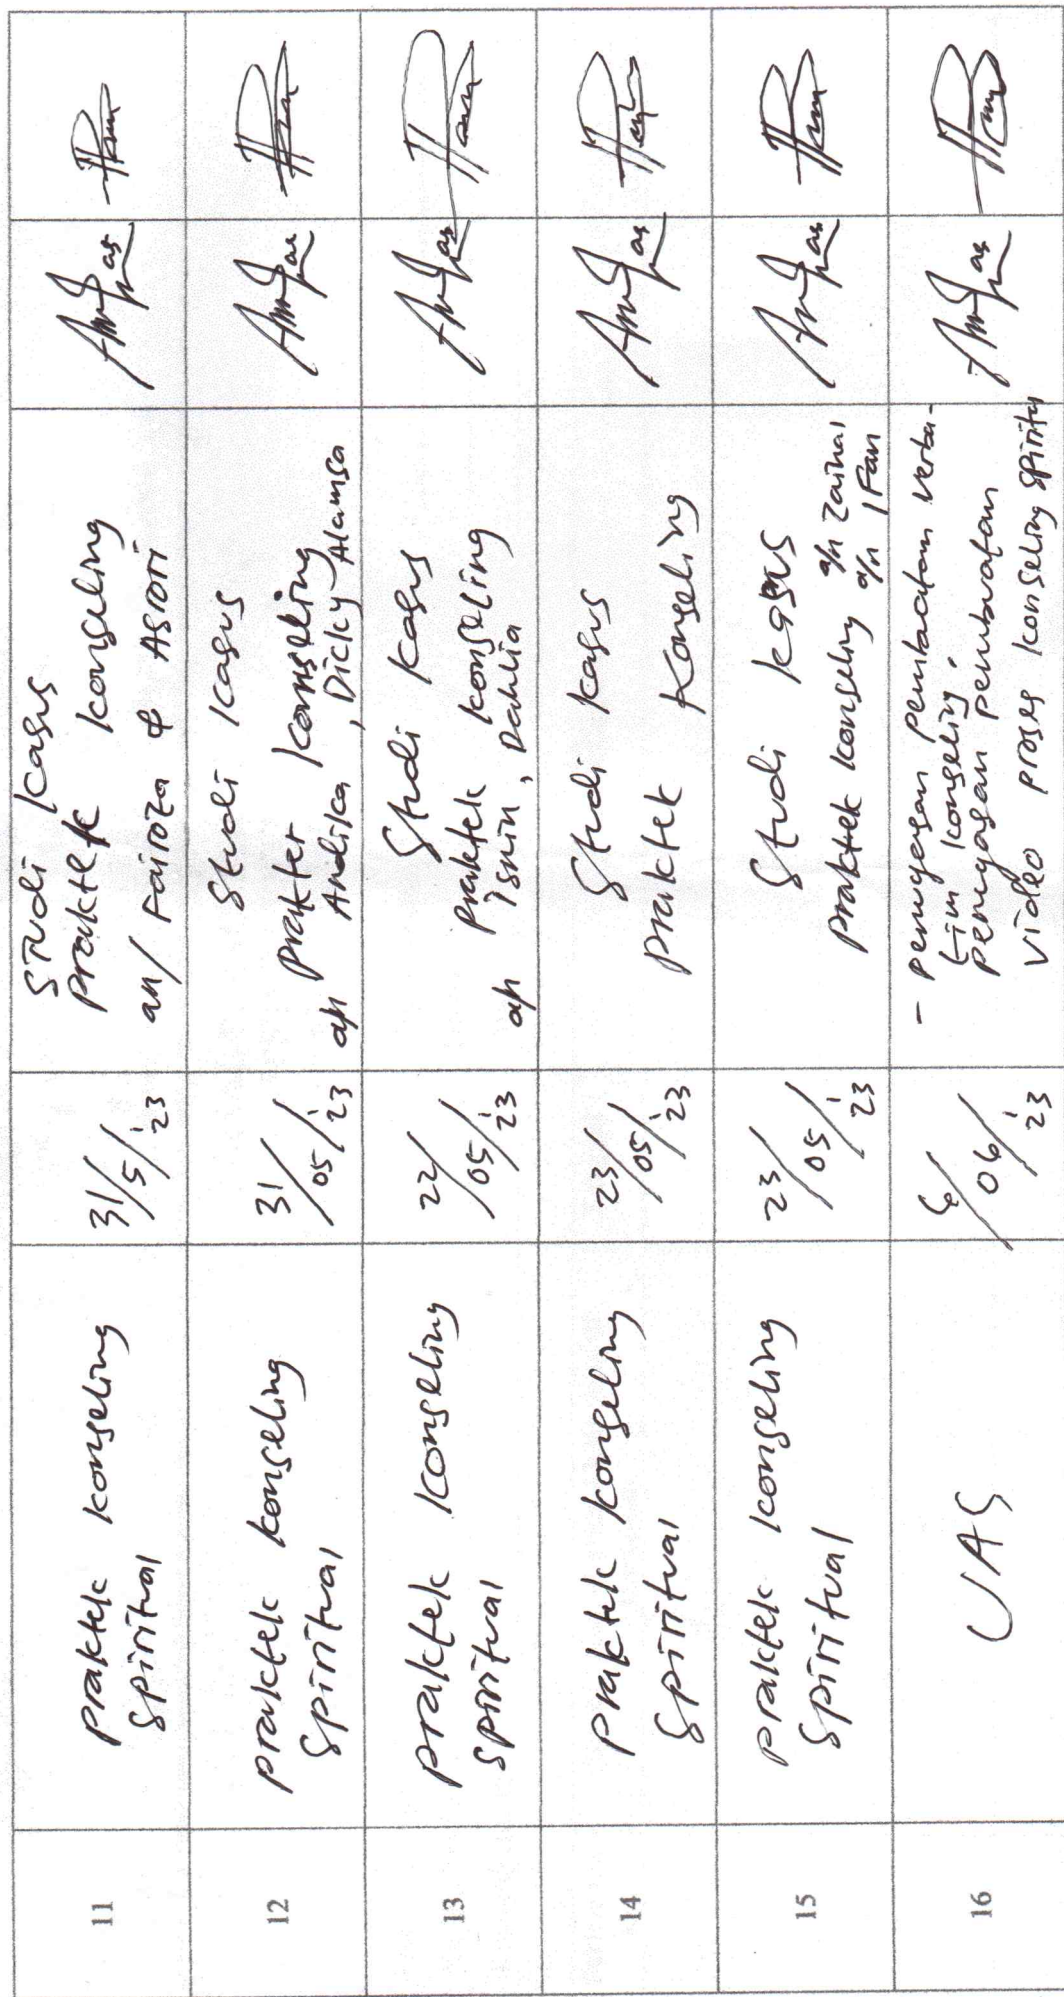 11
praktek konseling
spiritual
31/5/'23
Studi Kasus
Praktek Konseling
an/ Fairoza & Asrori
12
praktek konseling
spiritual
31/05/'23
Studi Kasus
prakter Konseling
a/n Andika, Dicky Alamsa
13
praktek konseling
spiritual
22/05/'23
Studi Kasus
praktek konseling
a/n Isnin, Dahlia
14
praktek konseling
spiritual
23/05/'23
Studi Kasus
praktek Konseling
15
praktek konseling
spiritual
23/05/'23
Studi Kasus
praktek konseling a/n Zainal
a/n Ifan
16
UAS
/06/'23
- penugasan pembuatan verba-
tim konseling.
penugasan pembuatan
video proses konseling spiritu